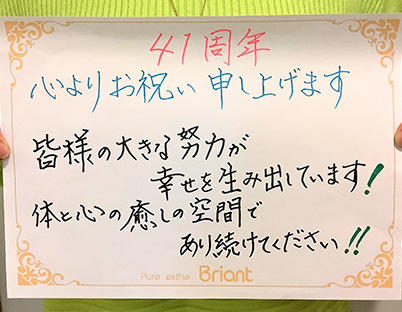 41周年
心よりお祝い申し上げます
皆様の大きな努力が
幸せを生み出しています!
体と心の癒しの空間で
あり続けてください!!
Pure esthe Briant